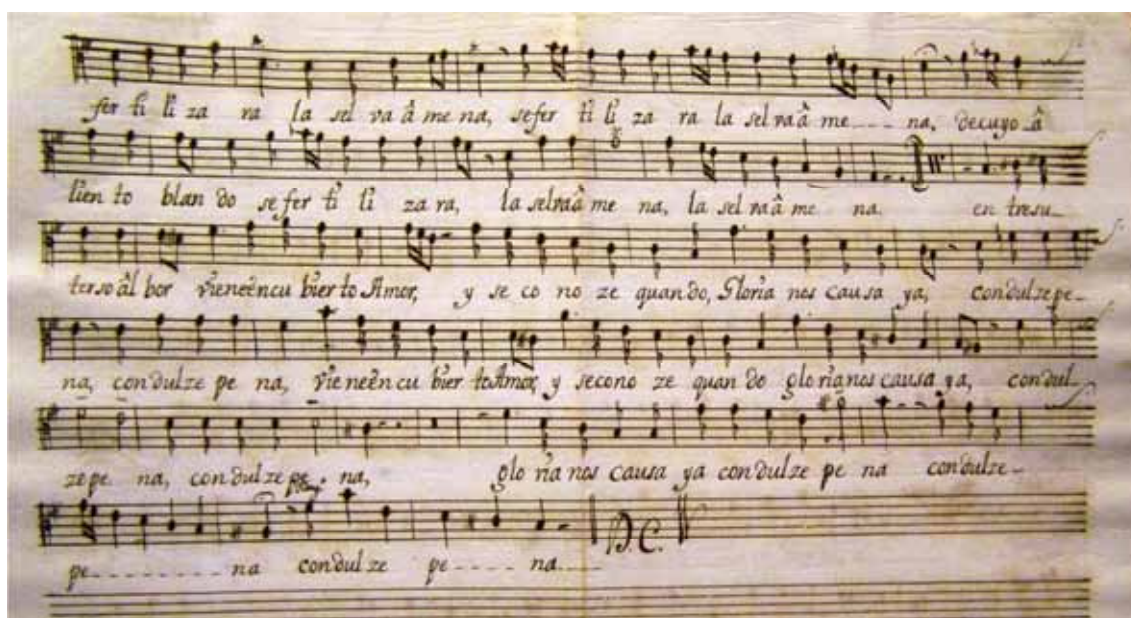 fer ti li za ra la sel va â me na, se fer ti li za ra la sel va â me---- na, de cuyo â
lien to blan do se fer ti li za ra, la selvaâ me na, la sel vaâ me na. en tre su-
terso âl bor vieneêncu bier to Amor, y se co no ze quando, Gloria nos causa ya, con dulze pe-
na, con dulze pe na, vie neên cu bier to Amor, y se cono ze quan do glo ria nos causa ya, con dul-
ze pe na, con dul ze pe - na, glo ria nos causa ya con dulze pe na con dulze-
pe------- na con dul ze pe----- na----
D.C.